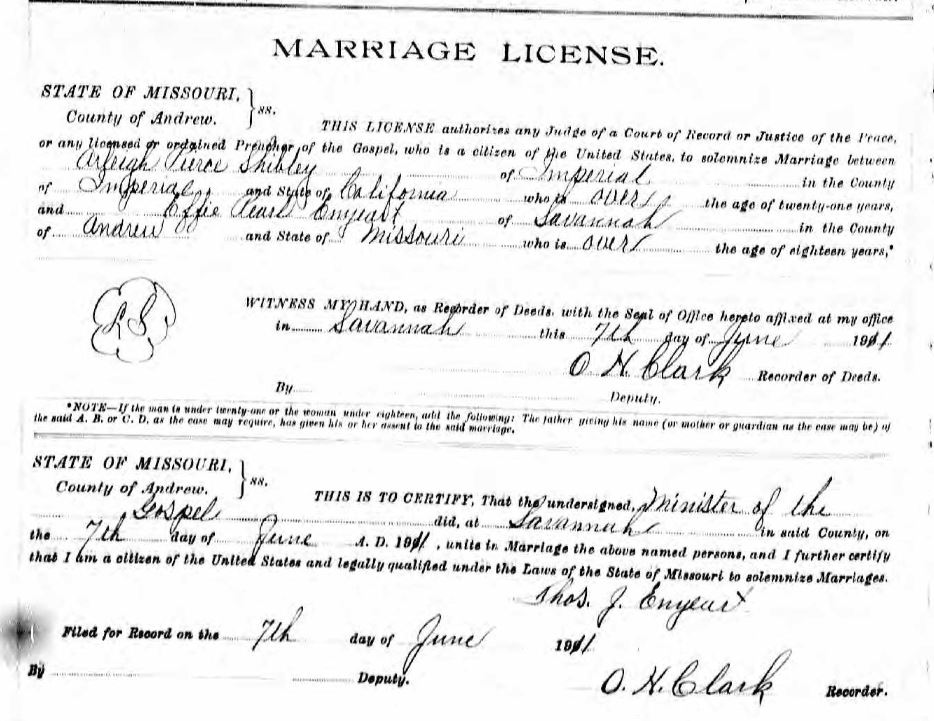 MARRIAGE LICENSE.
STATE OF MISSOURI,
County of Andrew. } ss.
THIS LICENSE authorizes any Judge of a Court of Record or Justice of the Peace,
or any licensed or ordained Preacher of the Gospel, who is a citizen of the United States, to solemnize Marriage between
Arleigh Pierce Shibley of Imperial in the County
of Imperial and State of California who is over the age of twenty-one years,
and Effie Pearl Enyeart of Savannah in the County
of Andrew and State of Missouri who is over the age of eighteen years,*
L S
WITNESS MY HAND, as Recorder of Deeds, with the Seal of Office hereto affixed at my office
in Savannah this 7th day of June 1911
O H Clark Recorder of Deeds.
By Deputy.
*NOTE—If the man is under twenty-one or the woman under eighteen, add the following: The father giving his name (or mother or guardian as the case may be) of
the said A. B. or C. D. as the case may require, has given his or her assent to the said marriage.
STATE OF MISSOURI,
County of Andrew. } ss.
THIS IS TO CERTIFY, That the undersigned, Minister of the
Gospel did, at Savannah in said County, on
the 7th day of June A. D. 1911, unite in Marriage the above named persons, and I further certify
that I am a citizen of the United States and legally qualified under the Laws of the State of Missouri to solemnize Marriages.
Thos. J. Enyeart
Filed for Record on the 7th day of June 1911
By Deputy. O. H. Clark Recorder.